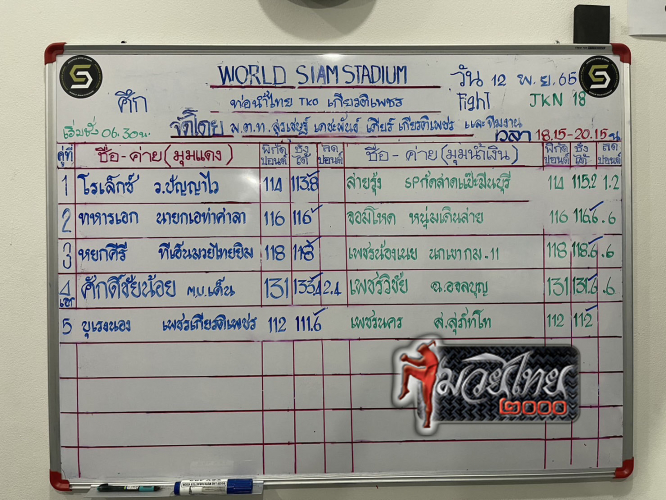 WORLD SIAM STADIUM
วัน 12 พ.ย. 65
ศึก ท่อน้ำไทย TKO เกียรติเพชร Fight JKN 18
เริ่มชั่ง 06.30 น. จัดโดย พ.ต.ท. สุรเชษฐ์ เตชะพันธ์ เศียร์ เกียรติเพชร และทีมงาน
เวลา 18.15-20.15 น
คู่ที่ ชื่อ-ค่าย (มุมแดง) พิกัดปอนด์ ชั่งได้ ลดปอนด์ ชื่อ-ค่าย (มุมน้ำเงิน) พิกัดปอนด์ ชั่งได้ ลดปอนด์
1 โรเล็กซ์ ว.ปัญญาไว 114 113.8 สายรุ้ง SPกัดลาดแป๊ะมีนบุรี 114 115.2 1.2
2 ทหารเอก นายกเอท่าศาลา 116 116 จอมโหด หนุ่มเดินสาย 116 116.6 .6
3 หยกคีรี ทีเอ็นมวยไทยยิม 118 118 เพชรน้องเนย นกเขากม.11 118 118.6 .6
4 เอก ศักดิ์ชัยน้อย ม.บ.แด็น 131 133.4 2.4 เพชรวิชัย 131 131.6 .6
5 บุเรงนอง เพชรเกียรติเพชร 112 111.6 เพชรนคร ส.สุภัทโท 112 112
มวยไทย
๒๐๐๐